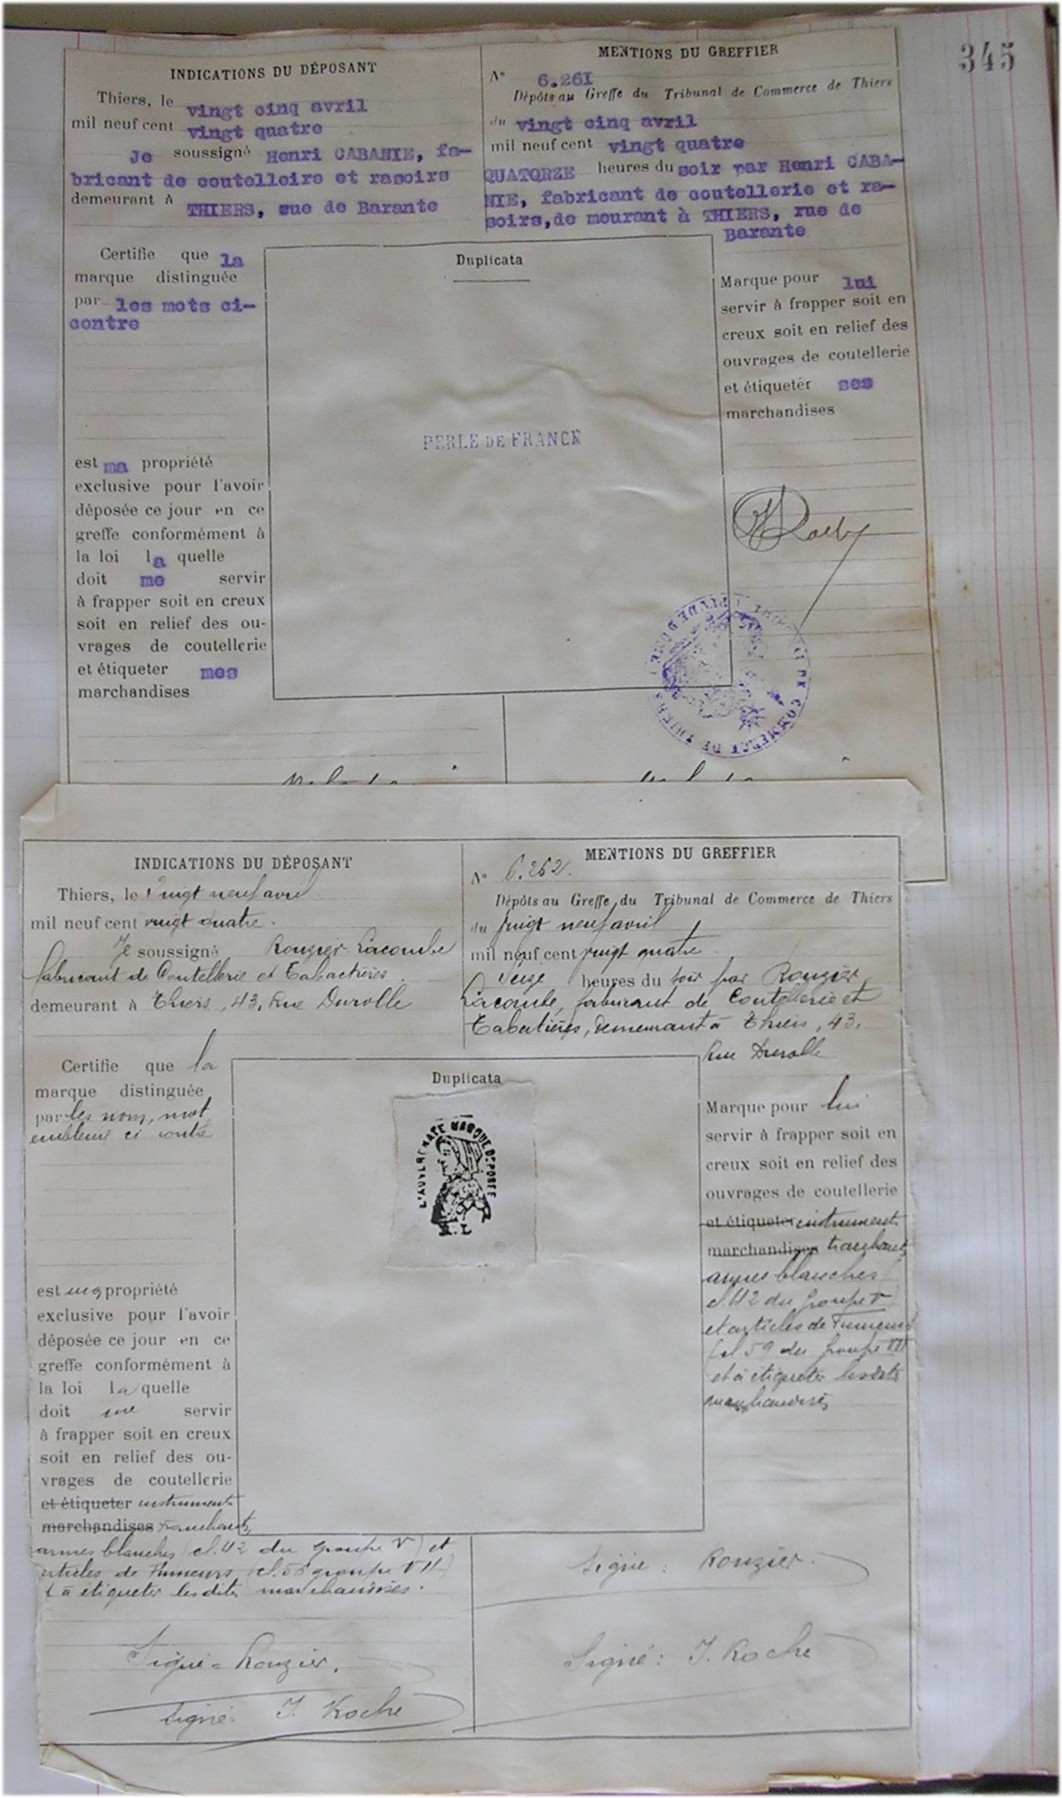 345
INDICATIONS DU DÉPOSANT
Thiers, le vingt cinq avril
mil neuf cent vingt quatre
Je soussigné Henri CABANIE, fa-
bricant de coutelleire et rasoirs
demeurant à THIERS, rue de Barante
MENTIONS DU GREFFIER
N° 6.261
Dépôts au Greffe du Tribunal de Commerce de Thiers
du vingt cinq avril
mil neuf cent vingt quatre
QUATORZE heures du soir par Henri CABA-
NIE, fabricant de coutellerie et ra-
soirs, de meurant à THIERS, rue de
Barante
Certifie que la
marque distinguée
par les mots ci-
contre
est ma propriété
exclusive pour l'avoir
déposée ce jour en ce
greffe conformément à
la loi la quelle
doit me servir
à frapper soit en creux
soit en relief des ou-
vrages de coutellerie
et étiqueter mes
marchandises
Duplicata
PERLE DE FRANCE
Marque pour lui
servir à frapper soit en
creux soit en relief des
ouvrages de coutellerie
et étiqueter ses
marchandises
INDICATIONS DU DÉPOSANT
Thiers, le vingt neuf avril
mil neuf cent vingt quatre.
Je soussigné Rouzier Lacombe
fabricant de Coutellerie et Tabatières
demeurant à Thiers, 43, Rue Durolle
MENTIONS DU GREFFIER
N° 6.262.
Dépôts au Greffe du Tribunal de Commerce de Thiers
du vingt neuf avril
mil neuf cent vingt quatre
heures du soir par Rouzier
Lacombe, fabricant de Coutellerie et
Tabatières, demeurant à Thiers, 43,
Rue Durolle
Certifie que la
marque distinguée
par les nom, mot
emblème ci contre
est ma propriété
exclusive pour l'avoir
déposée ce jour en ce
greffe conformément à
la loi la quelle
doit me servir
à frapper soit en creux
soit en relief des ou-
vrages de coutellerie
et étiqueter instruments
marchandises tranchants,
armes blanches (cl. 42 du groupe V) et
articles de Fumeurs (cl. groupe VII)
et à étiqueter lesdites marchandises.
Duplicata
L'AUVERGNATE MARQUE DÉPOSÉE
R. L
Marque pour lui
servir à frapper soit en
creux soit en relief des
ouvrages de coutellerie
et étiqueter instruments
marchandises tranchants
armes blanches
cl. 42 du groupe V)
et articles de Fumeurs
(cl 59 du groupe VII
et à étiqueter lesdites
marchandises
Signé: Rouzier.
Signé: J. Roche
Signé: Rouzier.
Signé: J. Roche